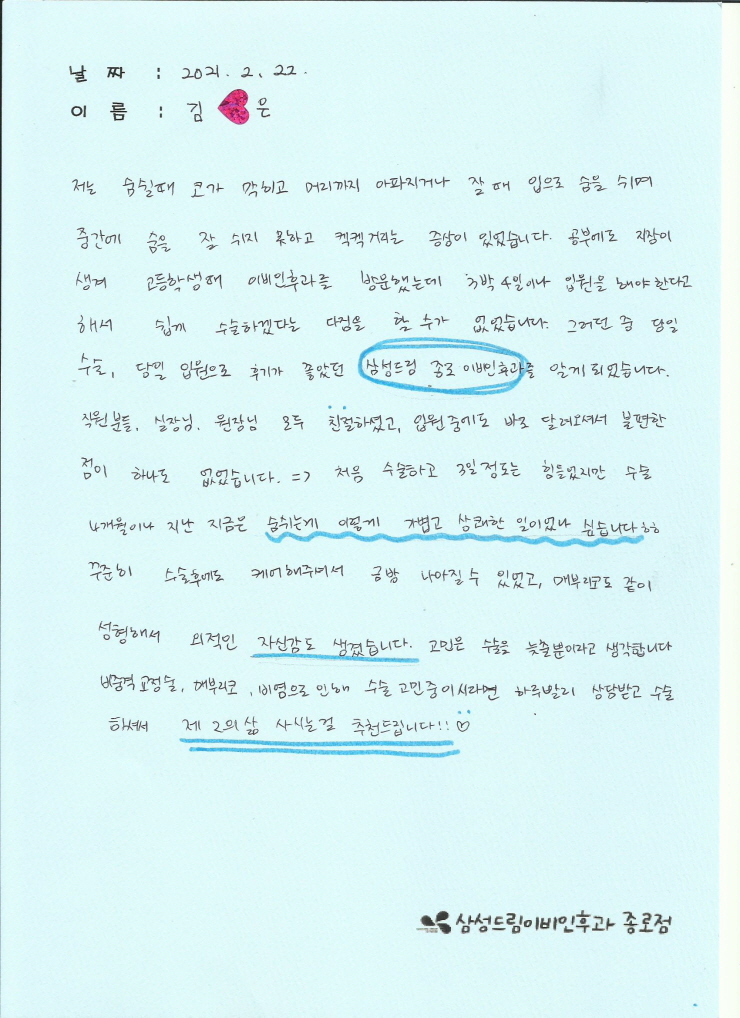 날 짜 : 2021. 2. 22.
이 름 : 김 은
저는 숨쉴때 코가 막히고 머리까지 아파지거나 잘 때 입으로 숨을 쉬며
중간에 숨을 잘 쉬지 못하고 켁켁거리는 증상이 있었습니다. 공부에도 지장이
생겨 고등학생때 이비인후과를 방문했는데 3박 4일이나 입원을 해야 한다고
해서 쉽게 수술하겠다는 다짐을 할 수가 없었습니다. 그러던 중 당일
수술, 당일 입원으로 후기가 좋았던 삼성드림 종로 이비인후과를 알게 되었습니다.
직원분들, 실장님, 원장님 모두 친절하셨고, 입원 중에도 바로 달려오셔서 불편한
점이 하나도 없었습니다. => 처음 수술하고 3일 정도는 힘들었지만 수술
4개월이나 지난 지금은 숨쉬는게 이렇게 가볍고 상쾌한 일이었나 싶습니다ㅎㅎ
꾸준히 수술후에도 케어해주셔서 금방 나아질 수 있었고, 매부리코도 같이
성형해서 외적인 자신감도 생겼습니다. 고민은 수술을 늦출뿐이라고 생각합니다
비중격 교정술, 매부리코, 비염으로 인해 수술 고민중이시라면 하루빨리 상담받고 수술
하셔서 제 2의 삶 사시는걸 추천드립니다!! ♡
삼성드림이비인후과 종로점